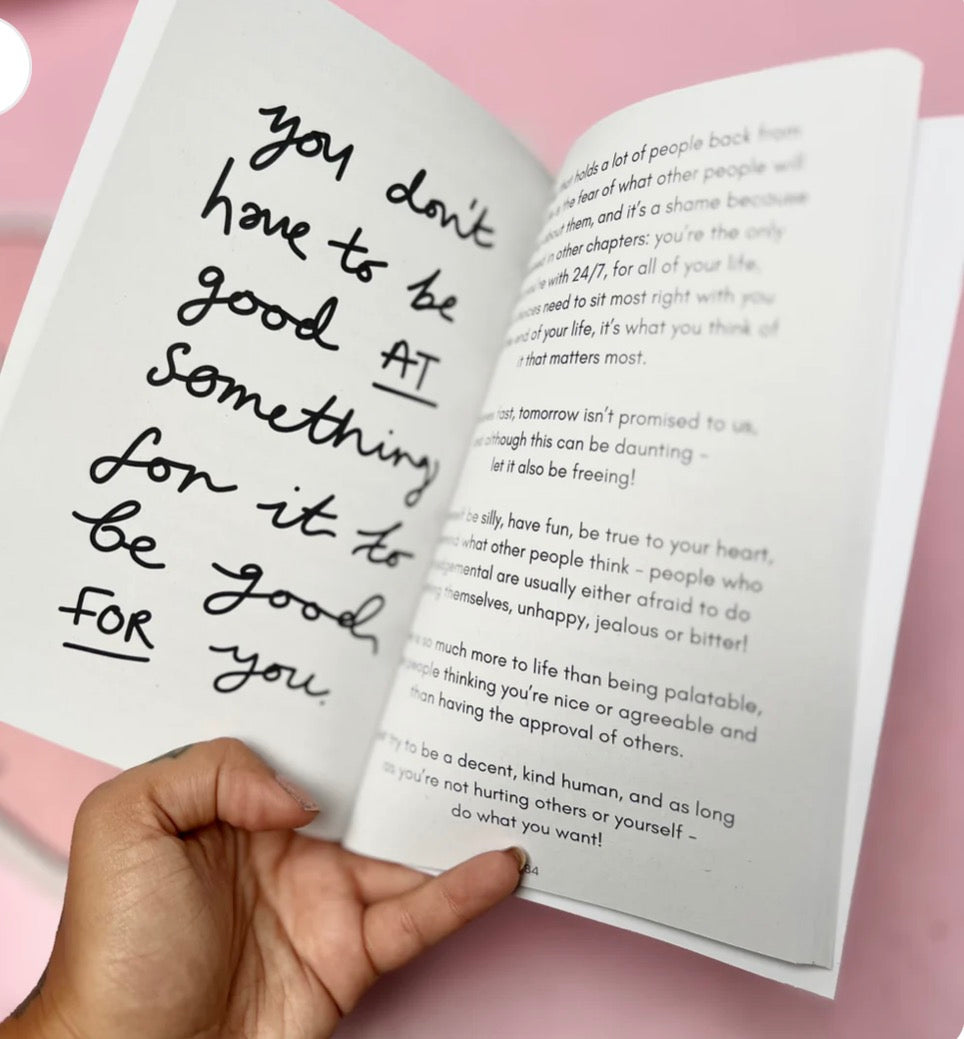 you don't
have to be
good AT
something
for it to
be good
FOR you.
holds a lot of people back from
the fear of what other people will
about them, and it's a shame because
in other chapters: you're the only
with 24/7, for all of your life,
need to sit most right with you
end of your life, it's what you think of
it that matters most.
fast, tomorrow isn't promised to us,
although this can be daunting –
let it also be freeing!
be silly, have fun, be true to your heart,
what other people think – people who
are usually either afraid to do
themselves, unhappy, jealous or bitter!
so much more to life than being palatable,
people thinking you're nice or agreeable and
than having the approval of others.
try to be a decent, kind human, and as long
as you're not hurting others or yourself –
do what you want!